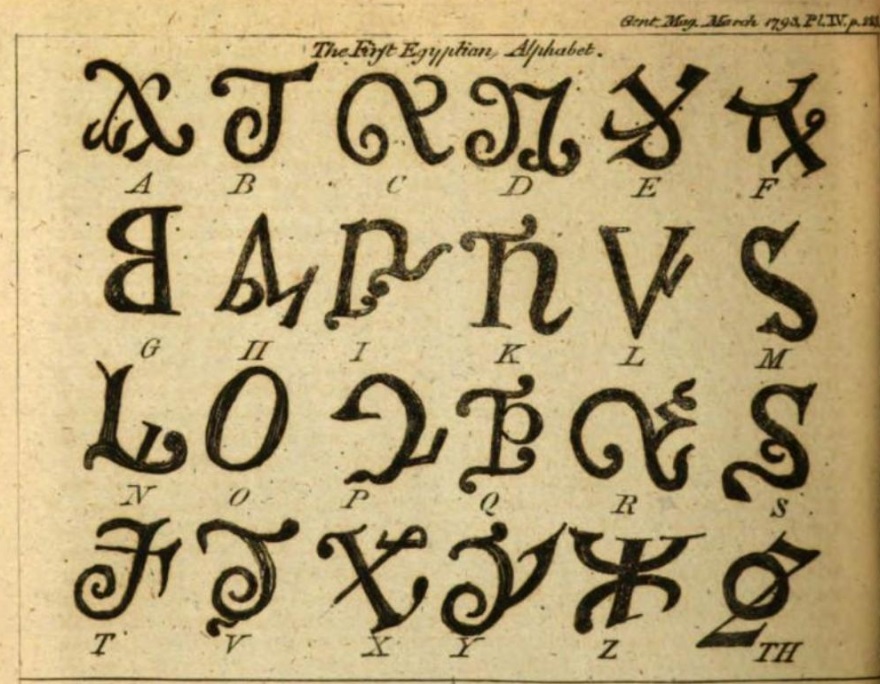 Gent. Mag. March 1793, Pl. IV. p.
The First Egyptian Alphabet.
A B C D E F
G H I K L M
N O P Q R S
T V X Y Z TH